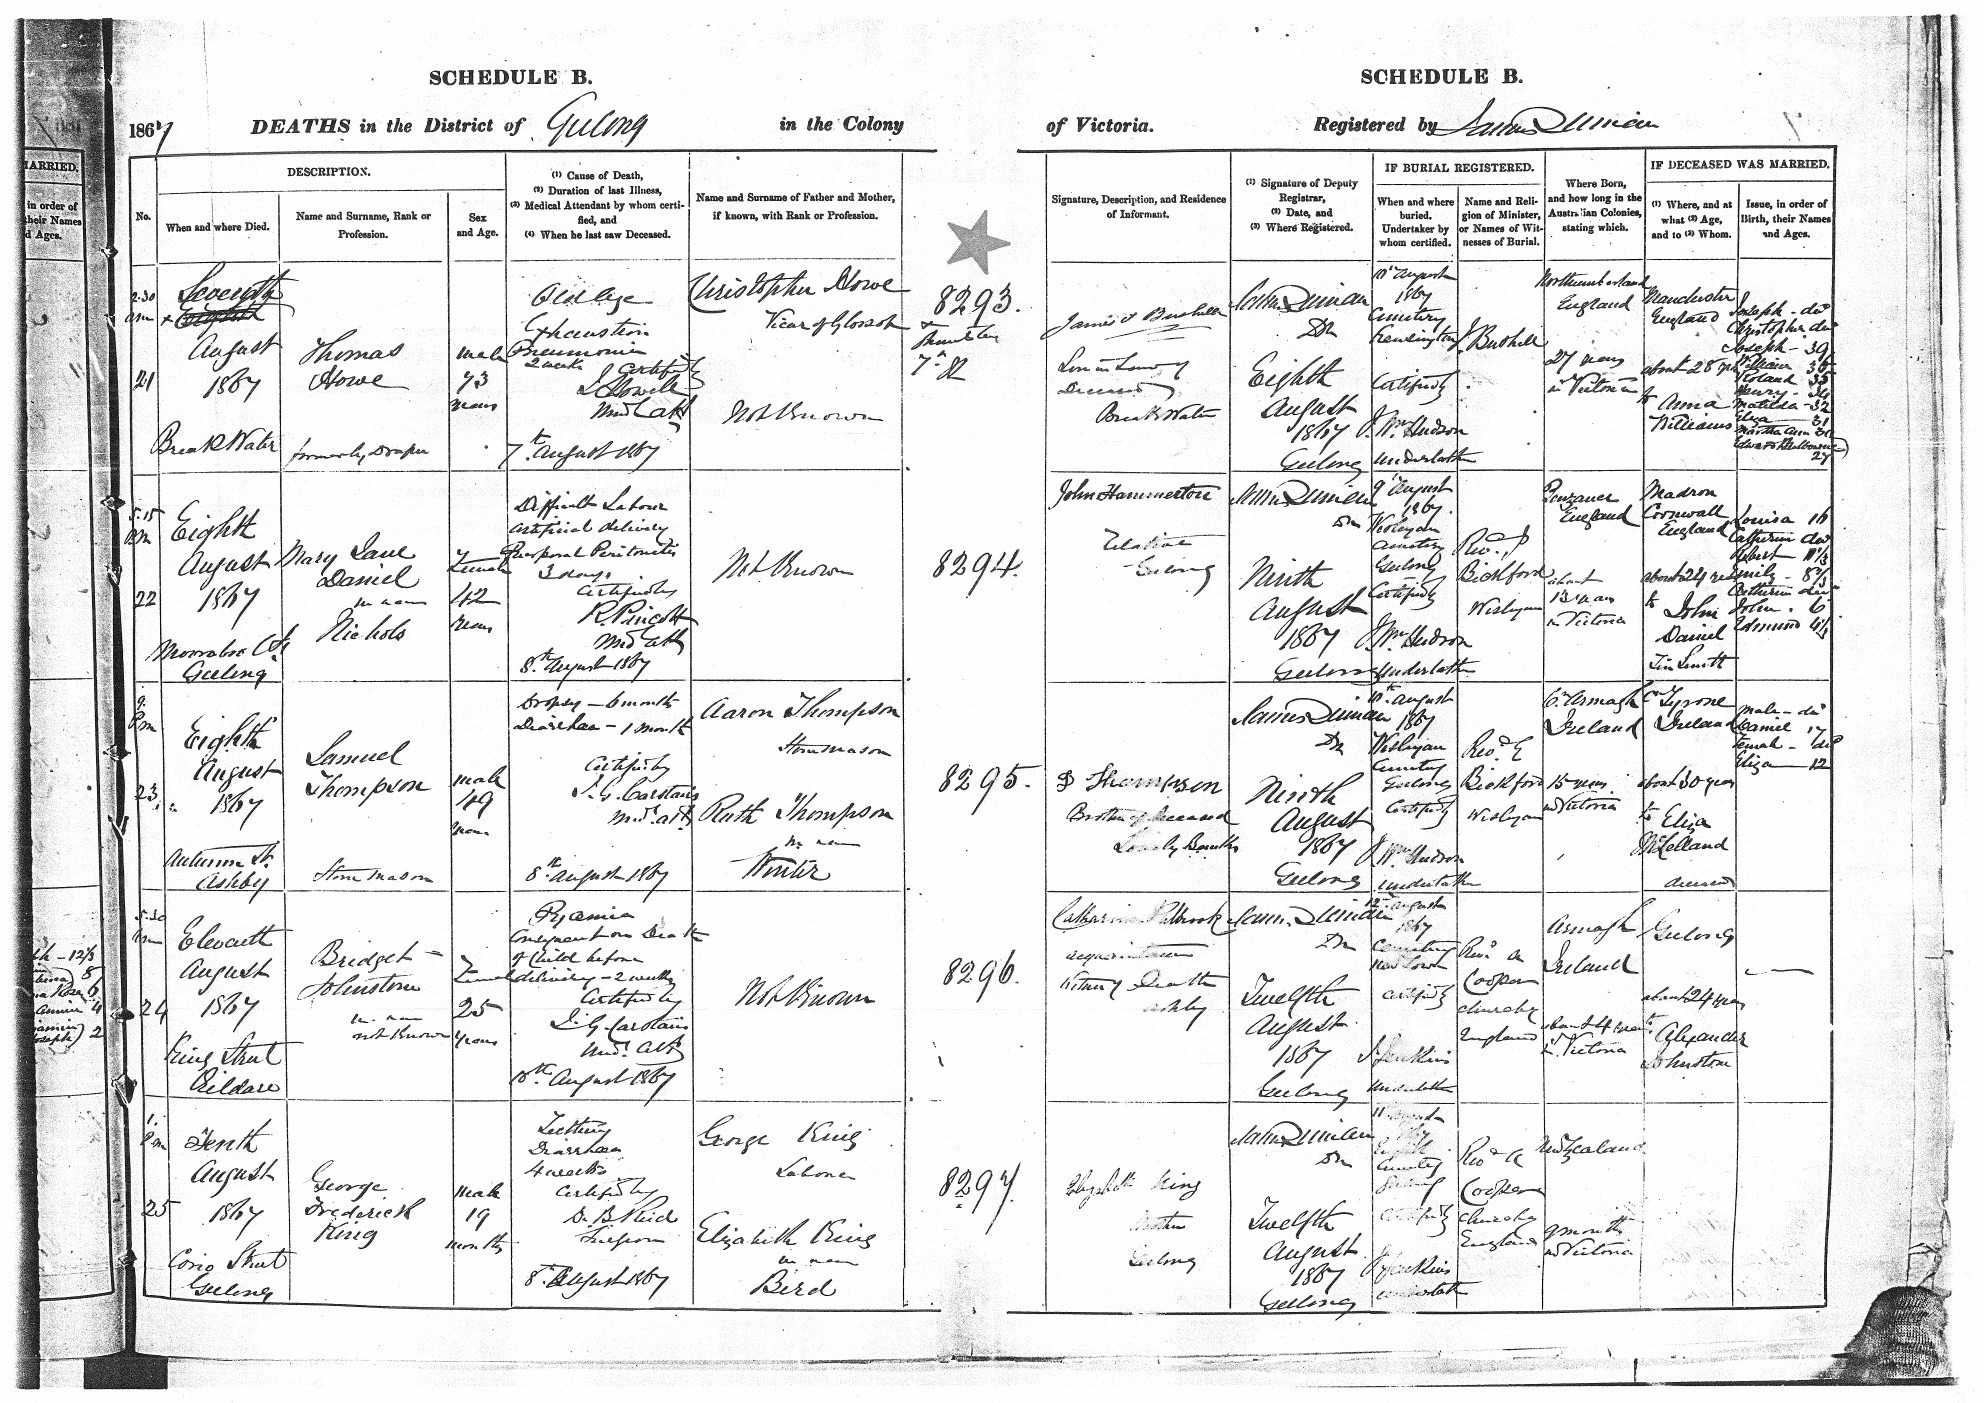 SCHEDULE B.
SCHEDULE B.
1867 DEATHS in the District of Geelong in the Colony
of Victoria. Registered by
MARRIED.
in order of
their Names
d Ages.
DESCRIPTION.
No.
When and where Died.
Name and Surname, Rank or
Profession.
Sex
and Age.
(1) Cause of Death,
(2) Duration of last Illness,
(3) Medical Attendant by whom certi-
fied, and
(4) When he last saw Deceased.
Name and Surname of Father and Mother,
if known, with Rank or Profession.
Signature, Description, and Residence
of Informant.
(1) Signature of Deputy
Registrar,
(2) Date, and
(3) Where Registered.
IF BURIAL REGISTERED.
When and where
buried.
Undertaker by
whom certified.
Name and Reli-
gion of Minister,
or Names of Wit-
nesses of Burial.
Where Born,
and how long in the
Australian Colonies,
stating which.
IF DECEASED WAS MARRIED.
(1) Where, and at
what (2) Age,
and to (3) Whom.
Issue, in order of
Birth, their Names
and Ages.
21
2.30
am
Seventh
August
1867
Break Water
Thomas
Howe
formerly Draper
male
73
years
Old age
Exhaustion
Pneumonia
2 weeks
7th August 1867
Christopher Howe
Vicar of Glossop
Not Known
8293.
Son in Law of
deceased
Break Water
Eighth
August
1867
Geelong
10th August
1867
Cemetery
Kensington
Certified by
J. Wm Hudson
Undertaker
J. Bushell
Northumberland
England
27 years
in Victoria
Manchester
England
about 28 yrs
to Anna
Williams
Joseph - dead
Christopher dead
Joseph - 39
William 36
Henry - 34
Matilda - 32
Eliza 31
22
5.15
Eighth
August
1867
Geelong
Mary Jane
Daniel
Nichols
Female
42
years
Difficult Labour
artificial delivery
Puerperal Peritonitis
3 days
Certified by
R. Pincott
8th August 1867
Not Known
8294.
John Hammerton
Relative
Geelong
Ninth
August
1867
Geelong
9th August
1867
Wesleyan
Cemetery
Geelong
Certified by
J. Wm Hudson
Undertaker
Revd J
Bickford
Wesleyan
Penzance
England
about
13 years
in Victoria
Madron
Cornwall
England
about 24 yrs
to John
Daniel
Tin Smith
Louisa 16
Catherine dead
Robert
Emily
Catherine dead
John - 6
Edmund
23
9
Pm
Eighth
August
1867
Autumn St.
Ashby
Samuel
Thompson
Stone mason
male
49
years
Dropsy - 6 months
Diarrhoea - 1 month
Certified by
J. G. Carstairs
8th August 1867
Aaron Thompson
Stone mason
Ruth Thompson
Winter
8295.
Thompson
Brother of Deceased
Ninth
August
1867
Geelong
10th August
1867
Wesleyan
Cemetery
Geelong
Certified by
J Wm Hudson
undertaker
Revd
Bickford
Wesleyan
Co. Armagh
Ireland
15 years
in Victoria
Co. Tyrone
Ireland
about 30 years
to Eliza
McLelland
deceased
male - dead
Daniel 17
Female - dead
Eliza - 12
24
5.30
Eleventh
August
1867
King Street
Kildare
Bridget
Johnstone
not Known
Female
25
years
Pyaemia
Consequent on Death
of Child before
delivery - 2 weeks
Certified by
J. G. Carstairs
10th August 1867
Not Known
8296.
Ashby
Twelfth
August
1867
Geelong
12th August
1867
Cemetery
Certified by
J. Jenkins
Undertaker
Revd
Cooper
Church of
England
Armagh
Ireland
about 4 years
in Victoria
Geelong
about 24 years
to Alexander
Johnstone
25
1.
Pm
Tenth
August
1867
Corio Street
Geelong
George
Frederick
King
male
19
months
Teething
Diarrhoea
4 weeks
Certified by
8th August 1867
George King
Labourer
Elizabeth King
Bird
8297.
Elizabeth King
mother
Geelong
Twelfth
August
1867
Geelong
Cemetery
Geelong
Certified by
J. Jenkins
undertaker
Revd
Cooper
Church of
England
New Zealand
9 months
in Victoria